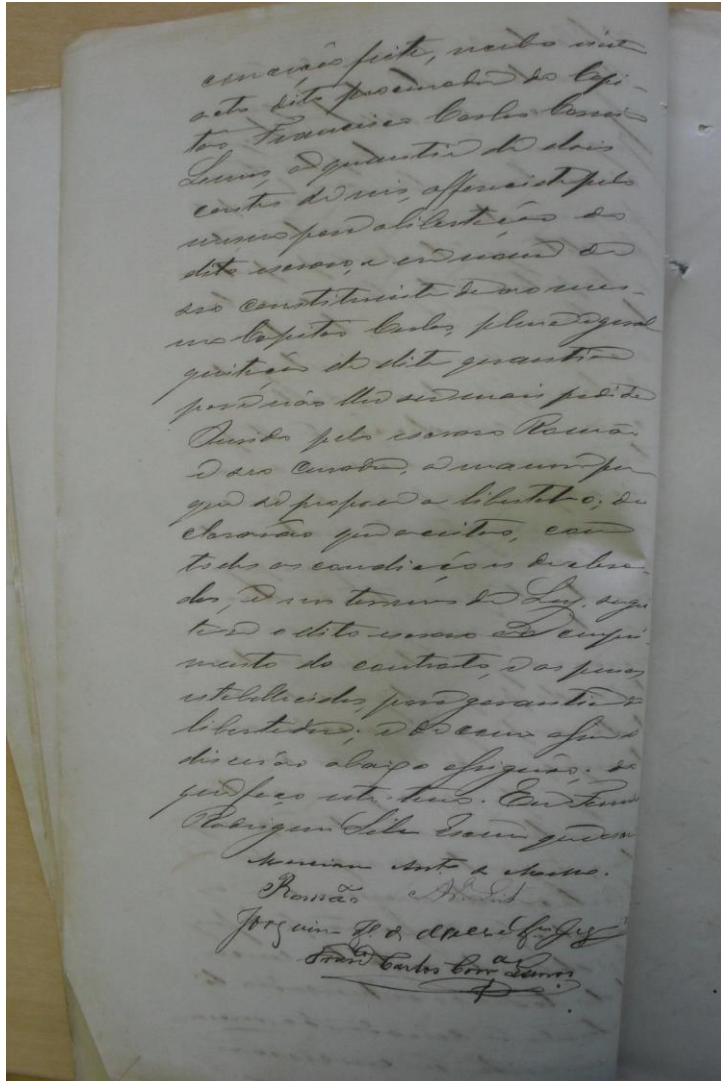 feita, recebo neste
acto dito procurador do Capi-
tão Francisco Carlos Correia
Lemos, a quantia de dois
contos de reis, offerecida pelo
mesmo para a libertação do
dito escravo, e em nome de
seo constituinte dá ao mes-
mo Capitão Carlos, plena e geral
quitação da dita quantia
para não lhe ser mais pedida
Ouvido pelo escravo Romão
e seo Curador, a maneira por
que se propoem a libertal-o; de
clararão que aceitão, com
todas as condicções declara-
das, e nos termos da Lei, sugei
tando o dito escravo ao cumpri-
mento do contracto, e as penas
estabellecidas, para garantia da
libertadora; e de como afim
disserão abaixo assignão; do
que faço este termo. Eu
Rodrigues Silva Escrivão que escrevi
Marciano Ant.º de
Romão
Joaquim
Fran.co Carlos Corr.ª Lemos